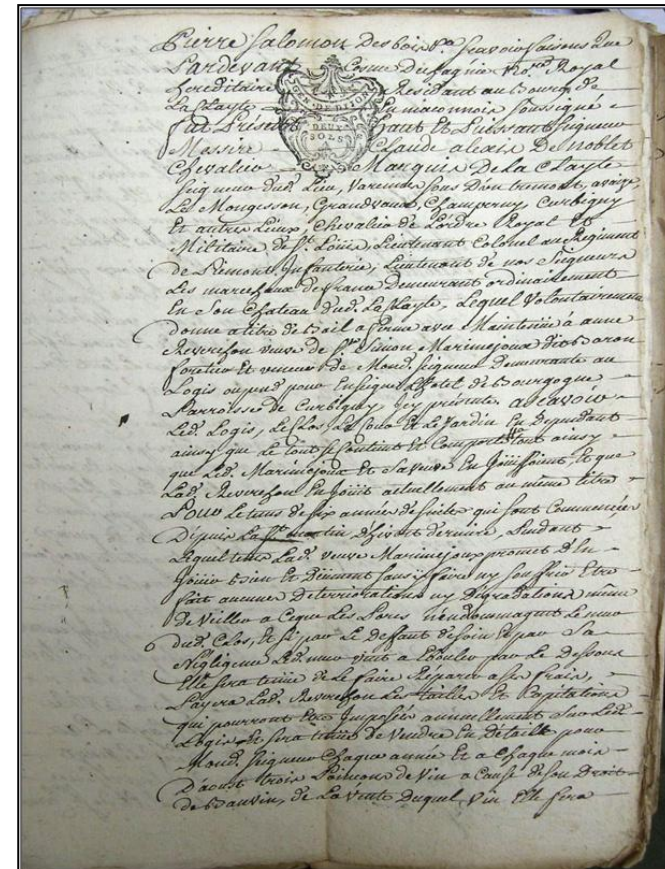 Pierre Salomon Desbois &c. scavoir faisons Que
Pardevant Cosme Notre Royal
hereditaire Résidant au Bourg de
La Clayte En maconnois soussigné
GEN. DE DIJON
DEUX
SOLS
fut Présent haut Et Puissant Seigneur
Messire Claude alexis De Noblet
Chevalier Marquis De La Clayte
Seigneur dud. Lieu, Varennes sous Dun tremont,
Le Mongesson, Grandvaux, Champerny Curbigny
Et autres Lieux, Chevalier de Lordre Royal Et
Militaire de St. Louis, Lieutenant Colonel au Regiment
de Piemont Infanterie, Lieutenant de nos Seigneurs
Les marechaux de france Demeurant ordinairement
En Son Chateau dud. La Clayte, Lequel Volontairement
donne a titre de Bail a ferme avec Maintenüe à anne
Reverchon veuve de Sr. Simon Marinejoux dit Baron
foretier et veneur de Mond. Seigneur Demeurante au
Logis ou pend pour Enseigne L'hotel de Bourgogne
Parroisse de Curbigny Icy présente ascavoir
Led. Logis, Le Clos La Cour Et Le Jardin En Dependant
ainsy que Le tout se Contient et Comporte tout ainsy
que Led. Marinejoux Et Sa veuve En Joüissoient, Et que
Lad. Reverchon En Joüit actuellement au meme titre
Pour Le tems de six année de suite qui sont Commencées
Depuis La St. martin d'hivert derniere, Pendant
Lequel tems Lad. veuve Marinejoux promet d'En
Joüir Bien et Deüment sans y faire ny souffrir Etre
fait aucunes Deterriorations ny Degredations même
de Veiller a Ceque Les Pores n'endommagent Le mur
dud. Clos, Et si par Le Defaut de soin Et par Sa
Negligence Led. mur vient a Ebouler par Le dessous
Elle sera tenüe de Le faire Reparer a ses frais,
Payera Lad. Reverchon Les tailles Et Capitations
qui pourront Etre Imposées annuellement Sur Led.
Logis Et sera tenüe de Vendre En Détaill pour
Mond. Seigneur Chaque année Et a Chaque mois
D'aoust trois Poinçons de Vin a cause de son Droit
de Banvin, de La Vente Duquel Vin Elle sera